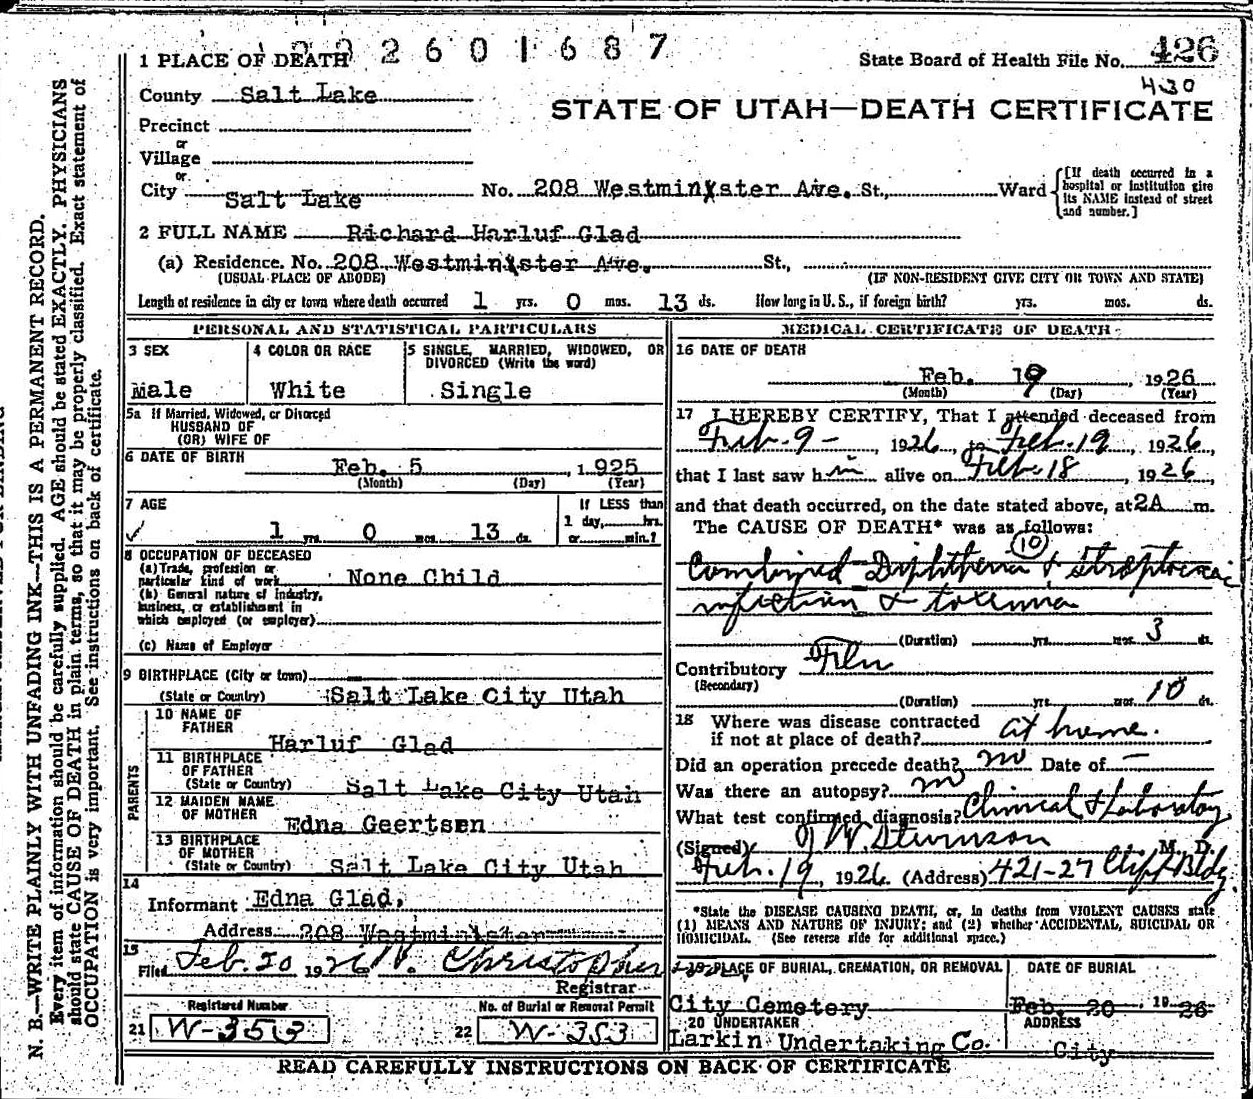 2601687
1 PLACE OF DEATH
State Board of Health File No. 426
430
County Salt Lake
STATE OF UTAH—DEATH CERTIFICATE
Precinct
or
Village
or
City Salt Lake No. 208 Westminxster Ave. St., Ward
[If death occurred in a hospital or institution give its NAME instead of street and number.]
2 FULL NAME Richard Harluf Glad
(a) Residence. No. 208 Westminxster Ave. St.,
(USUAL PLACE OF ABODE) (IF NON-RESIDENT GIVE CITY OR TOWN AND STATE)
Length of residence in city or town where death occurred 1 yrs. 0 mos. 13 ds. How long in U. S., if foreign birth? yrs. mos. ds.
PERSONAL AND STATISTICAL PARTICULARS
3 SEX
Male
4 COLOR OR RACE
White
5 SINGLE, MARRIED, WIDOWED, OR
DIVORCED (Write the word)
Single
5a If Married, Widowed, or Divorced
HUSBAND OF
(OR) WIFE OF
6 DATE OF BIRTH
Feb. 5, 1925
(Month) (Day) (Year)
7 AGE
1 yrs. 0 mos. 13 ds.
If LESS than
1 day, hrs.
or min.?
8 OCCUPATION OF DECEASED
(a) Trade, profession or
particular kind of work None Child
(b) General nature of Industry,
business, or establishment in
which employed (or employer)
(c) Name of Employer
9 BIRTHPLACE (City or town)
(State or Country) Salt Lake City Utah
PARENTS
10 NAME OF
FATHER
Harluf Glad
11 BIRTHPLACE
OF FATHER
(State or Country) Salt Lake City Utah
12 MAIDEN NAME
OF MOTHER
Edna Geertsen
13 BIRTHPLACE
OF MOTHER
(State or Country) Salt Lake City Utah
14
Informant Edna Glad,
Address 208 Westminxster
15
Filed Feb. 20 1926 Christopher
Registrar
Registered Number
21 W-353
No. of Burial or Removal Permit
22 W-353
MEDICAL CERTIFICATE OF DEATH
16 DATE OF DEATH
Feb. 19, 1926
(Month) (Day) (Year)
17 I HEREBY CERTIFY, That I attended deceased from
Feb. 9 - 1926, to Feb. 19, 1926,
that I last saw h im alive on Feb. 18, 1926,
and that death occurred, on the date stated above, at 2A m.
The CAUSE OF DEATH* was as follows:
10
Combined Diphtheria & Streptococcic
infection & toxemia
(Duration) yrs. mos. 3 ds.
Contributory Flu
(Secondary)
(Duration) yrs. mos. 10 ds.
18 Where was disease contracted
if not at place of death? at home.
Did an operation precede death? no Date of —
Was there an autopsy? no
What test confirmed diagnosis? Clinical & Laboratory
(Signed) M. D.
Feb. 19, 1926. (Address) 421-27 Clift Bldg.
*State the DISEASE CAUSING DEATH, or, in deaths from VIOLENT CAUSES state
(1) MEANS AND NATURE OF INJURY; and (2) whether ACCIDENTAL, SUICIDAL OR
HOMICIDAL. (See reverse side for additional space.)
19 PLACE OF BURIAL, CREMATION, OR REMOVAL
City Cemetery
DATE OF BURIAL
Feb. 20, 1926
20 UNDERTAKER
Larkin Undertaking Co.
ADDRESS
City
READ CAREFULLY INSTRUCTIONS ON BACK OF CERTIFICATE
N. B.—WRITE PLAINLY WITH UNFADING INK—THIS IS A PERMANENT RECORD.
Every item of information should be carefully supplied. AGE should be stated EXACTLY. PHYSICIANS
should state CAUSE OF DEATH in plain terms, so that it may be properly classified. Exact statement of
OCCUPATION is very important. See instructions on back of certificate.